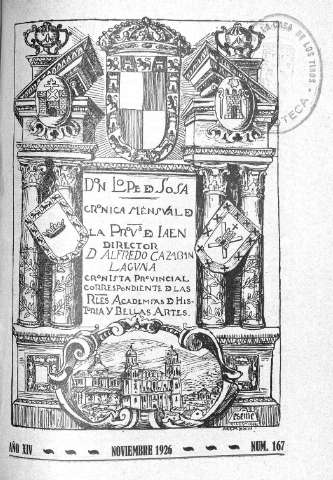 LA CASA DE LOS TIROS
TECA
DON LOPE D SOSA
CRONICA MENSVAL D
LA PROVA D IAEN
DIRECTOR
D ALFREDO CAZABAN
LAGUNA
CRONISTA PROVINCIAL
CORRESPONDIENTE D LAS
RLES ACADEMIAS D HIS-
TORIA Y BELLAS ARTES.
AÑO XIV NOVIEMBRE 1926 NUM. 167